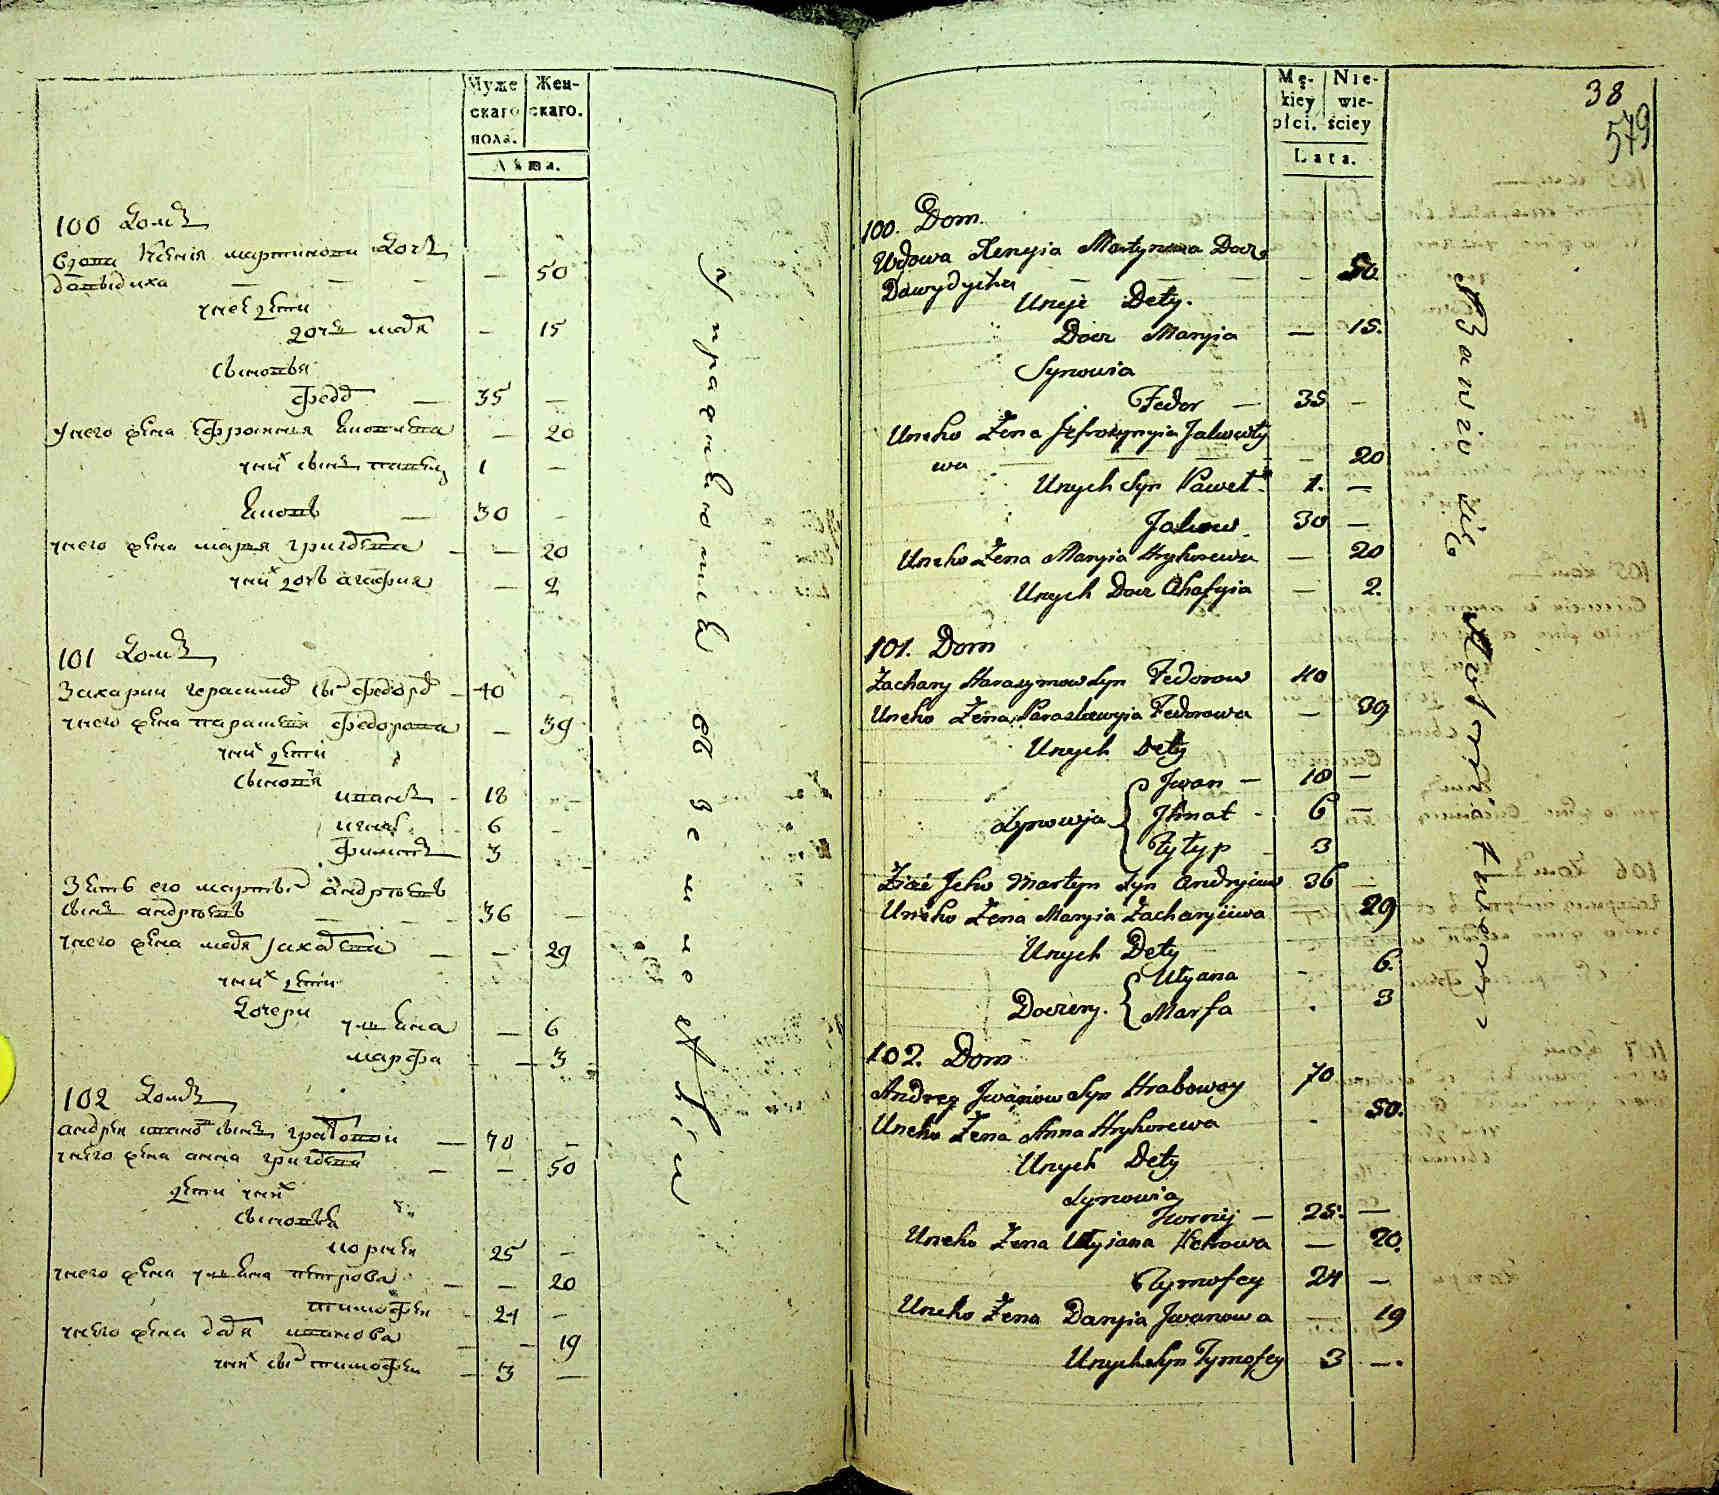 Муже
скаго
пола.
Жен-
скаго.
Лѣта.
100 Домъ
Вдова Ксенія мартинова дочъ
давыдиха — — — — 50
унеі дети
дочъ марья — 15
сыновья
федор — 35 —
унего жена Ефросиния Яковлева — 20
уних сынъ павелъ 1 —
Яковъ — 30 —
унего жена марья григорева — — 20
уних дочь агафия — 2
101 Домъ
Захарии герасимов сын федоров — 40 —
унего жена параскевія федорова — 39
уних дети
сыновья
иванъ - 18 —
игнат - 6 -
филипъ 3
Зять его мартын андреевъ
сынъ андреевъ — — — 36 —
унего жена марья захарева — — 29
уних дети
Дочери
улеяна — 6
марфа — 3
102 Домъ
андрей иванов сынъ грабовой — 70 —
унего жена анна григорева — — 50
дети уних
сыновья
корней 25 —
унего жена улеяна петрова — — 20
тимофеи - 24 —
унего жена дарья иванова — - 19
уних сын тимофеи — 3 —
Упраждняютца въ земледѣліи
Mę-
kiey
płci.
Nie-
wie-
ściey
Lata.
38
579
100. Dom.
Wdowa Xenyia Martynowa Docz
Dawydycha — — — - 50.
Uneje Dety.
Docz Maryia — 15.
Synowia
Fedor — 35 —
Uneho Żena Jefrosynyia Jakowle
wa — — — — 20
Unych Syn Paweł 1. —
Jakow 30 —
Uneho Żena Maryia Hryhorewa — 20
Unych Docz Ahafyia — 2.
101. Dom
Zachary Harasymow Syn Fedorow 40
Uneho Żena Paraskewyia Fedorowa — 39
Unych Dety
Synowja { Jwan — 18 —
Jhnat - 6 —
Fylyp - 3
Ziać Jeho Martyn Syn Andryiew 36 —
Uneho Żena Maryia Zacharyiewa — 29
Unych Dety
Doczery. { Ulyana - 6.
Marfa . 3
102. Dom
Andrey Jwanow Syn Hrabowoy 70
Uneho Żena Anna Hryhorewa - 50.
Unych Dety
Synowia
Korniy — 25. —
Uneho Żena Ulyiana Petrowa — 20.
Tymofey 24 —
Uneho Żena Daryia Jwanowa — 19
Unych Syn Tymofey 3 —.